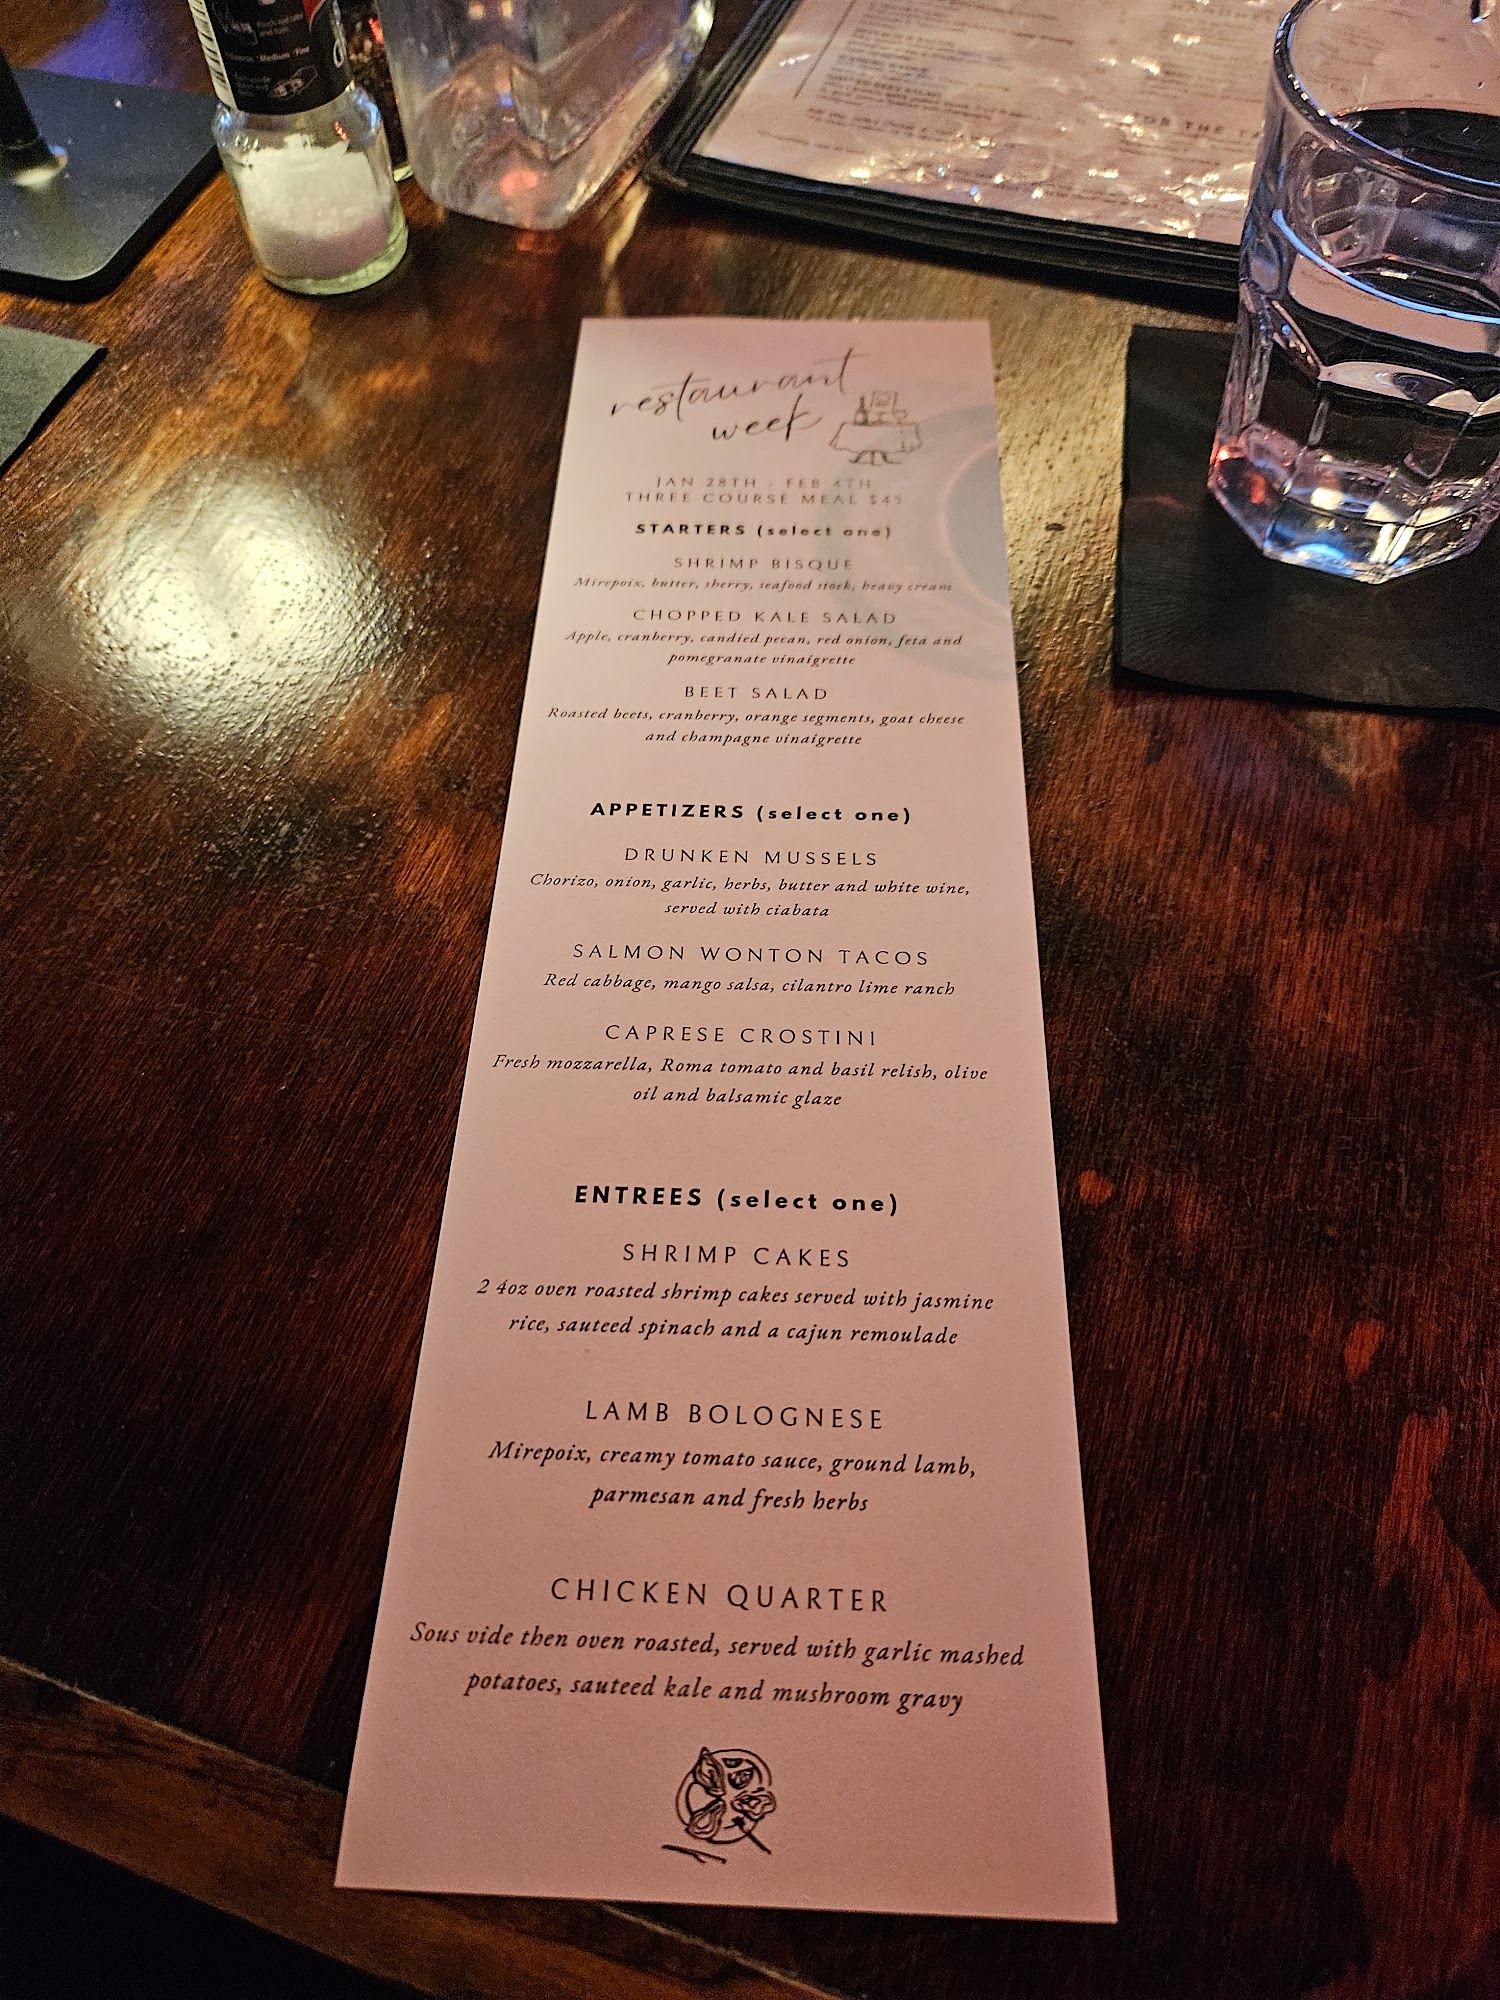 restaurant
week
JAN 28TH - FEB 4TH
THREE COURSE MEAL $45
STARTERS (select one)
SHRIMP BISQUE
Mirepoix, butter, sherry, seafood stock, heavy cream
CHOPPED KALE SALAD
Apple, cranberry, candied pecan, red onion, feta and
pomegranate vinaigrette
BEET SALAD
Roasted beets, cranberry, orange segments, goat cheese
and champagne vinaigrette
APPETIZERS (select one)
DRUNKEN MUSSELS
Chorizo, onion, garlic, herbs, butter and white wine,
served with ciabata
SALMON WONTON TACOS
Red cabbage, mango salsa, cilantro lime ranch
CAPRESE CROSTINI
Fresh mozzarella, Roma tomato and basil relish, olive
oil and balsamic glaze
ENTREES (select one)
SHRIMP CAKES
2 4oz oven roasted shrimp cakes served with jasmine
rice, sauteed spinach and a cajun remoulade
LAMB BOLOGNESE
Mirepoix, creamy tomato sauce, ground lamb,
parmesan and fresh herbs
CHICKEN QUARTER
Sous vide then oven roasted, served with garlic mashed
potatoes, sauteed kale and mushroom gravy